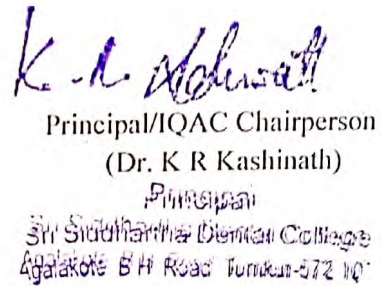 Principal/IQAC Chairperson
(Dr. K R Kashinath)
Principal
Sri Siddhartha Dental College
Agalakote B H Road Tumkur-572 10